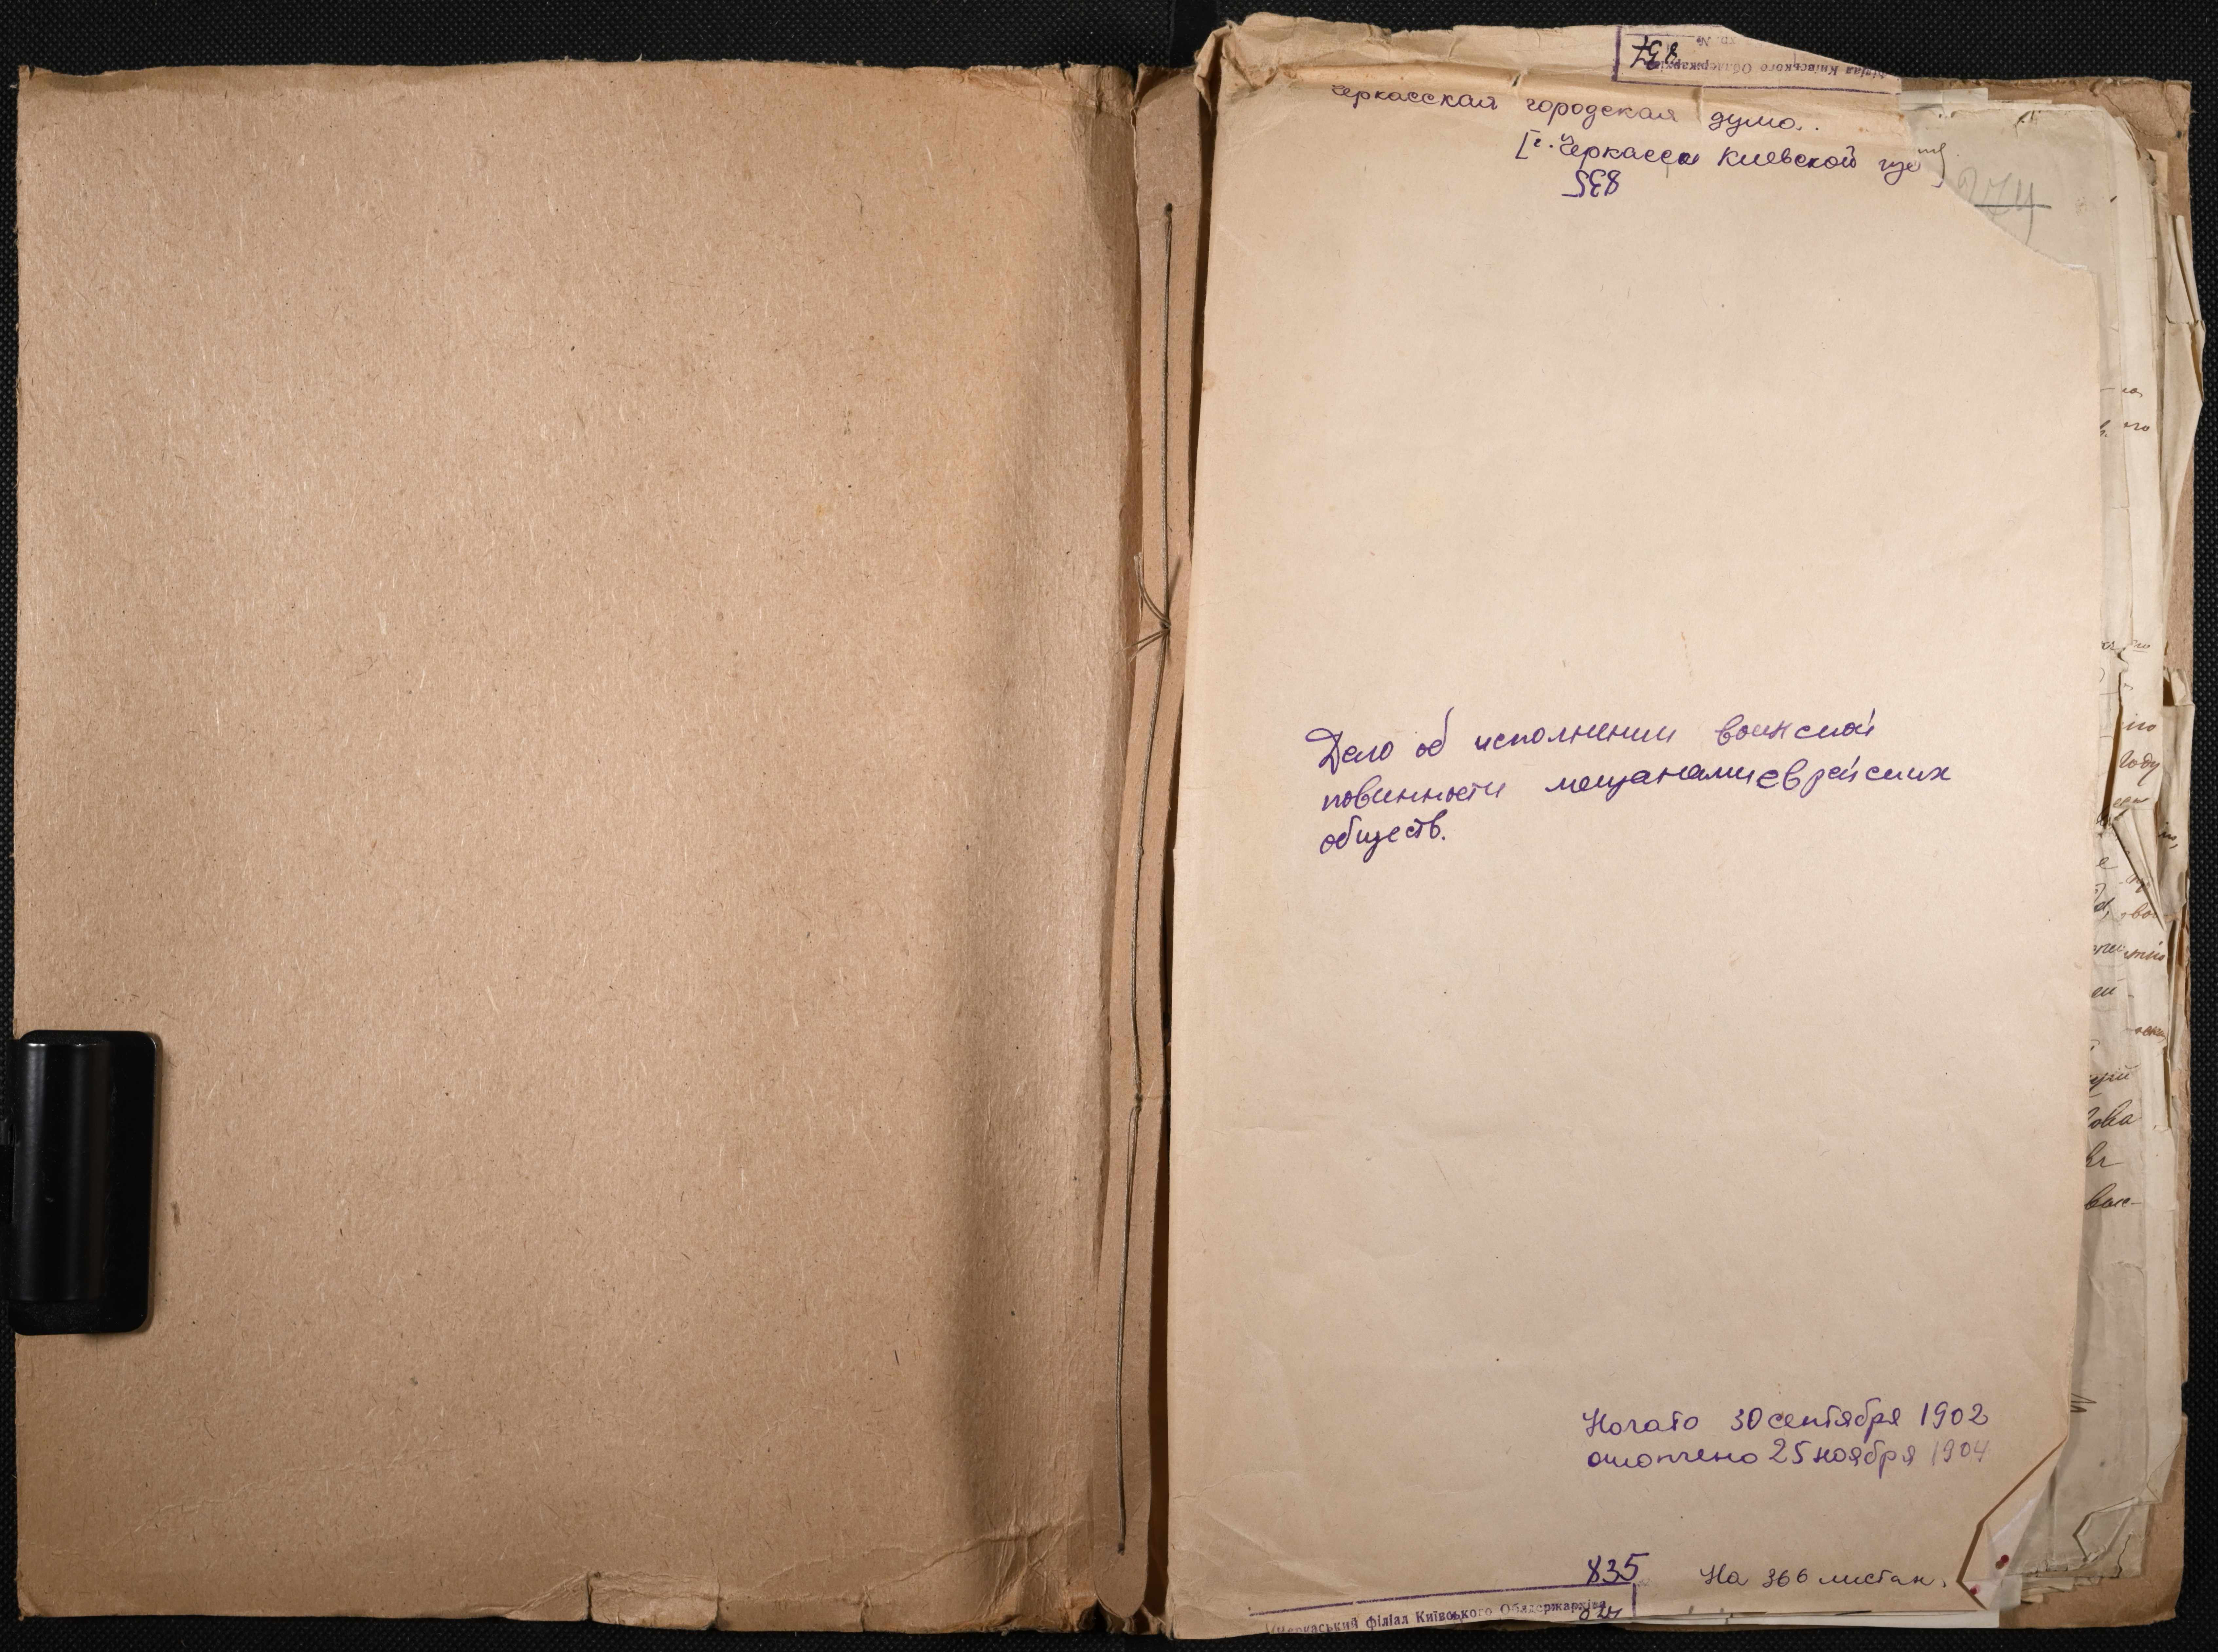 837
Черкасская городская дума.
[г. Черкассы Киевской губ]
835
274
Дело об исполнении воинской
повинности мещанами еврейских
обществ.
Начато 30 сентября 1902
окончено 25 ноября 1904
835 На 366 листах.
Черкаський філіал Київського Облдержархіва